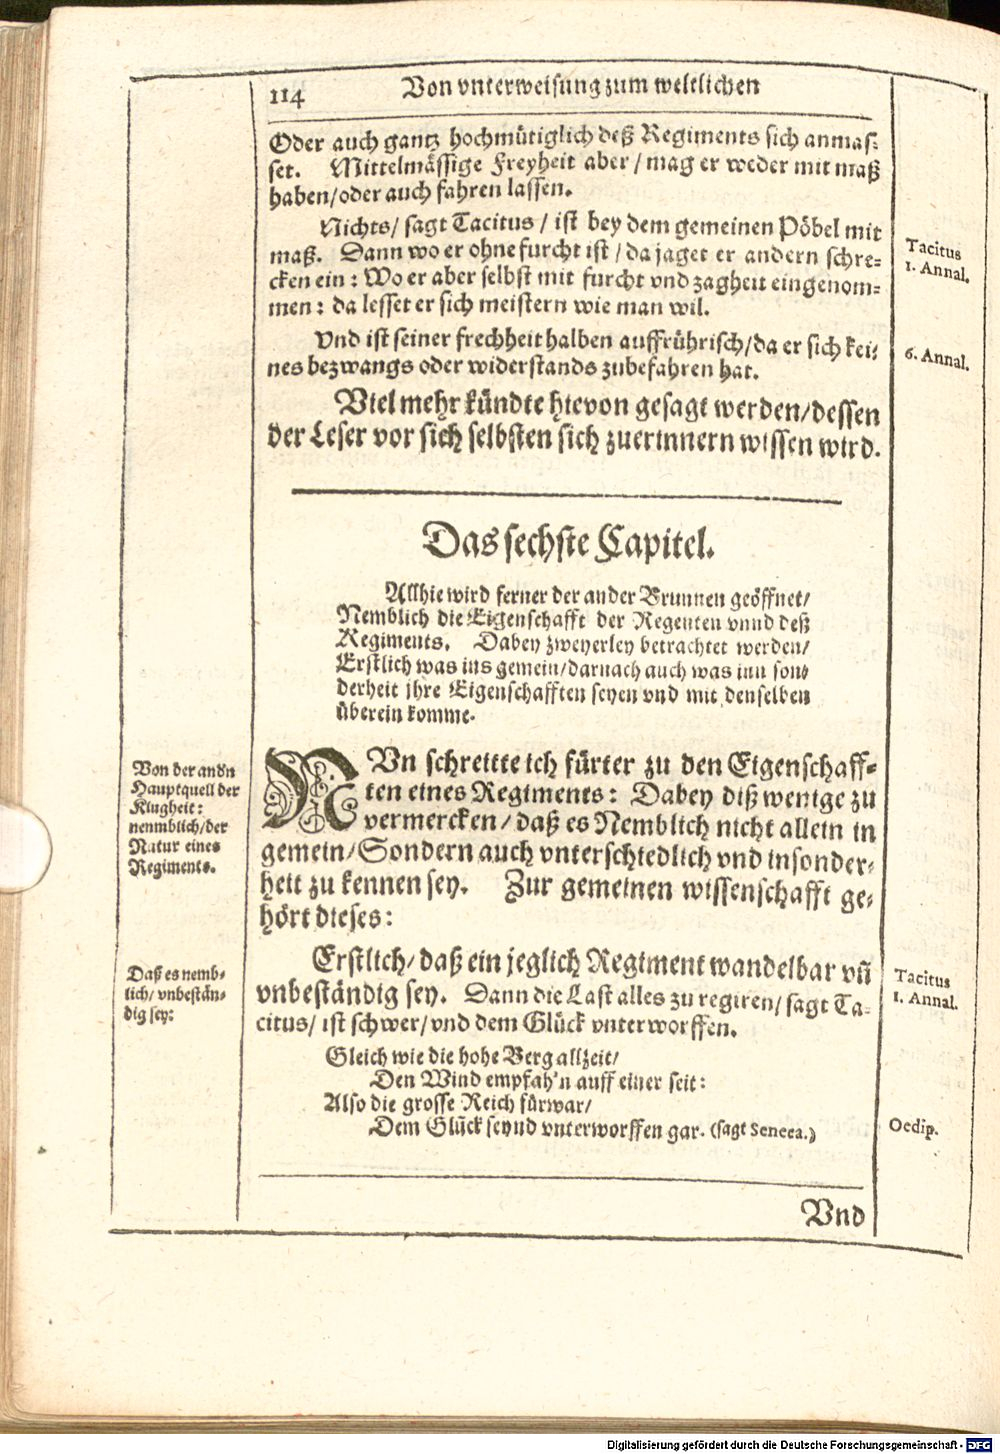 114
Von vnterweisung zum weltlichen
Oder auch gantz hochmütiglich deß Regiments sich anmas-
set. Mittelmässige Freyheit aber / mag er weder mit maß
haben/oder auch fahren lassen.
Nichts/ sagt Tacitus / ist bey dem gemeinen Pöbel mit
maß. Dann wo er ohne furcht ist / da jaget er andern schre-
cken ein: Wo er aber selbst mit furcht vnd zagheit eingenom-
men: da lesset er sich meistern wie man wil.
Tacitus
1. Annal.
Vnd ist seiner frechheit halben auffrührisch/da er sich kei-
nes bezwangs oder widerstands zubefahren hat.
6. Annal.
Viel mehr kündte hievon gesagt werden/dessen
der Leser vor sich selbsten sich zuerinnern wissen wird.
Das sechste Capitel.
Allhie wird ferner der ander Brunnen geöffnet/
Nemblich die Eigenschafft der Regenten vnnd deß
Regiments. Dabey zweyerley betrachtet werden/
Erstlich was ins gemein/darnach auch was inn son-
derheit jhre Eigenschafften seyen vnd mit denselben
überein komme.
Von der andn
Hauptquell der
Klugheit:
nenmblich/der
Natur eines
Regiments.
NVn schreitte ich fürter zu den Eigenschaff-
ten eines Regiments: Dabey diß wenige zu
vermercken/ daß es Nemblich nicht allein in
gemein/Sondern auch vnterschiedlich vnd insonder-
heit zu kennen sey. Zur gemeinen wissenschafft ge-
hört dieses:
Daß es nemb-
lich/ vnbestän-
dig sey:
Erstlich/ daß ein jeglich Regiment wandelbar vñ
vnbeständig sey. Dann die Last alles zu regiren/ sagt Ta-
citus/ ist schwer/vnd dem Glück vnterworffen.
Tacitus
1. Annal.
Gleich wie die hohe Berg allzeit/
Den Wind empfah'n auff einer seit:
Also die grosse Reich fürwar/
Dem Glück seynd vnterworffen gar. (sagt Seneca.)
Oedip.
Vnd
Digitalisierung gefördert durch die Deutsche Forschungsgemeinschaft - DFG